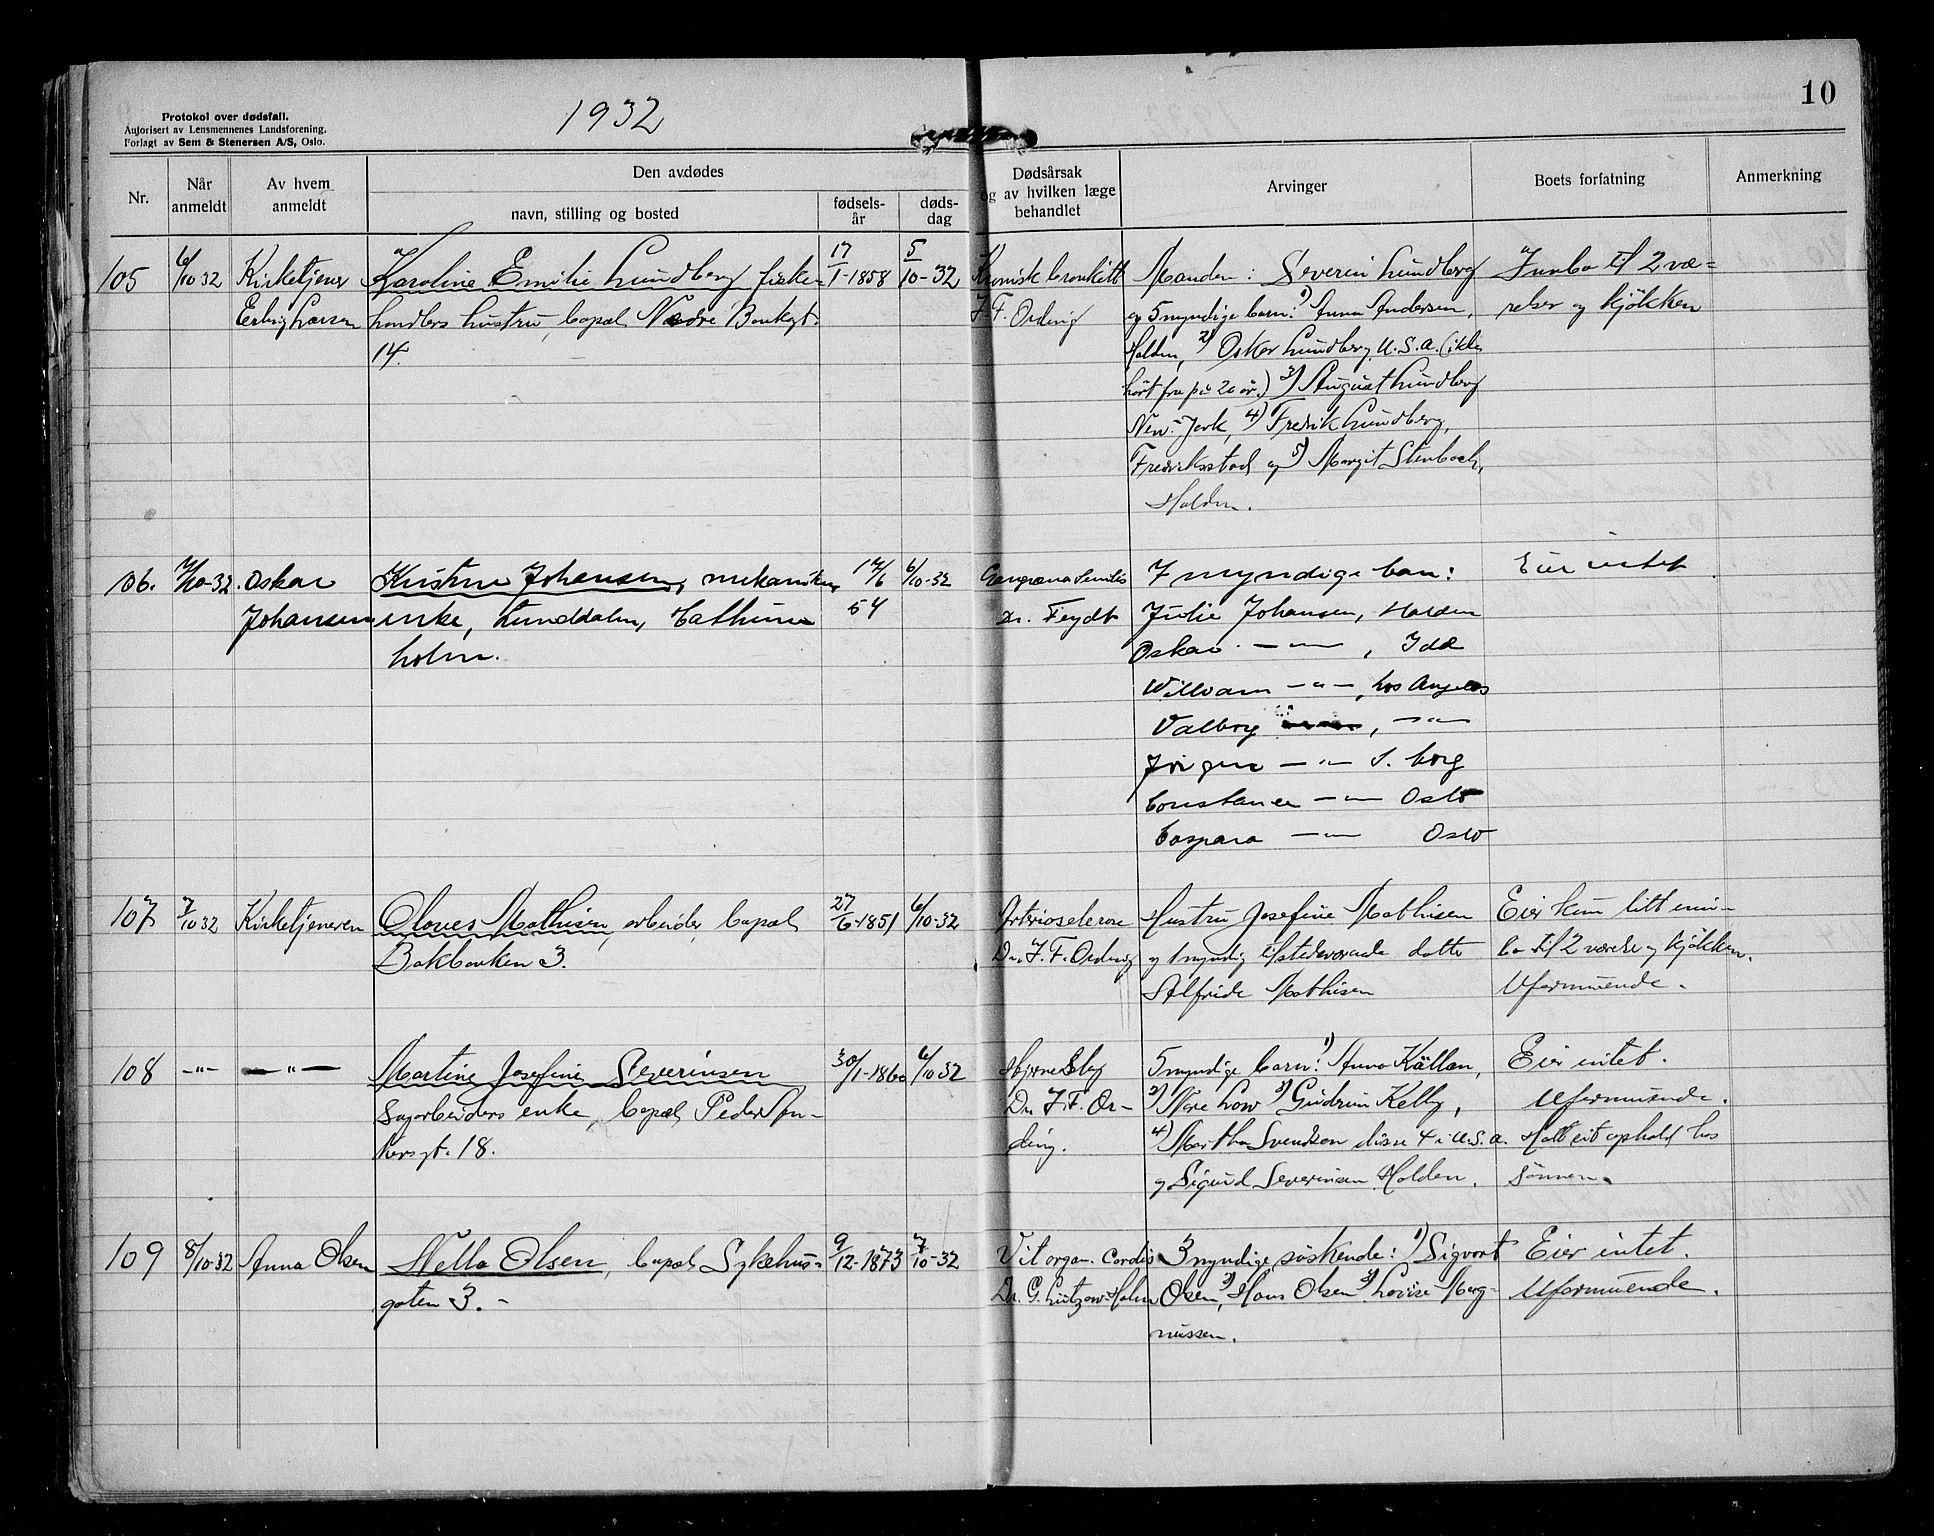 10
Protokol over dødsfall.
Autorisert av Lensmennenes Landsforening.
Forlagt av Sem & Stenersen A/S, Oslo.
1932
Nr.
Når
anmeldt
Av hvem
anmeldt
Den avdødes
navn, stilling og bosted
fødsels-
år
døds-
dag
Dødsårsak
og av hvilken læge
behandlet
Arvinger
Boets forfatning
Anmerkning
105
6/10 32
Kirketjener
Erling Larsen
Karoline Emilie Lundberg fiske-
handlers hustru, bopæl Nedre Bankgt.
14.
17/1-1858
5/10-32
Kronisk bronkitt
J. F. Ording
Manden: Severin Lundberg
og 5 myndige barn: 1) Anna Andersen,
Halden, 2) Oskar Lundberg U.S.A. (ikke
hørt fra på 20 år.) 3) August Lundberg
New-Jork, 4) Fredrik Lundberg,
Fredriksstad og 5) Margit Stenbach,
Halden.
Innbo til 2 væ-
relser og kjøkken
106.
7/10-32
Oskar
Johansen
Kristine Johansen, mekaniker
enke, Lunddalen, Cathrine
holm.
14/6
54
6/10-32
Gangræna Senilis
Dr. Feydt
7 myndige barn:
Julie Johansen, Halden
Oskar —"—, Idd
William —"—, Los Angelos
Valborg , —"—
Jørgen —"— S. borg
Constance —"— Oslo
Caspara —"— Oslo
Eier intet
107
7/10 32
Kirketjeneren
Olaves Mathisen, arbeider, bopæl
Bakbanken 3.
27/6-1851
6/10-32
Arteriosclerose
Dr. J. F. Ording
Hustru Josefine Mathisen
og 1 myndig tilstedeværende datter
Alfride Mathisen
Eier kun litt inn-
bo til 2 værelse og kjøkken.
Uformuende.
108
—"—
—"—
Martine Josefine Severinsen
Sagarbeiders enke, bopæl Peder An-
kersgt. 18.
30/1-1860
6/10-32
Hjerneslag
Dr. J. F. Or-
ding.
5 myndige barn: 1) Anna Källan,
2) Mare Low 3) Gudrun Kelly,
4) Martha Svendsen disse 4 i U.S.A.
og Sigurd Severinsen Halden.
Eier intet.
Uformuende.
Hatt sit ophold hos
sønnen.
109
8/10-32
Anna Olsen
Nella Olsen, bopæl Sykehus-
gaten 3. -
9/12-1873
7/10-32
Vit organ. Cordis
Dr. G. Lützow-Holm
3 myndige søskende: 1) Sigvart
Olsen, 2) Hans Olsen 3) Lovise Mag-
nussen.
Eier intet.
Uformuende.